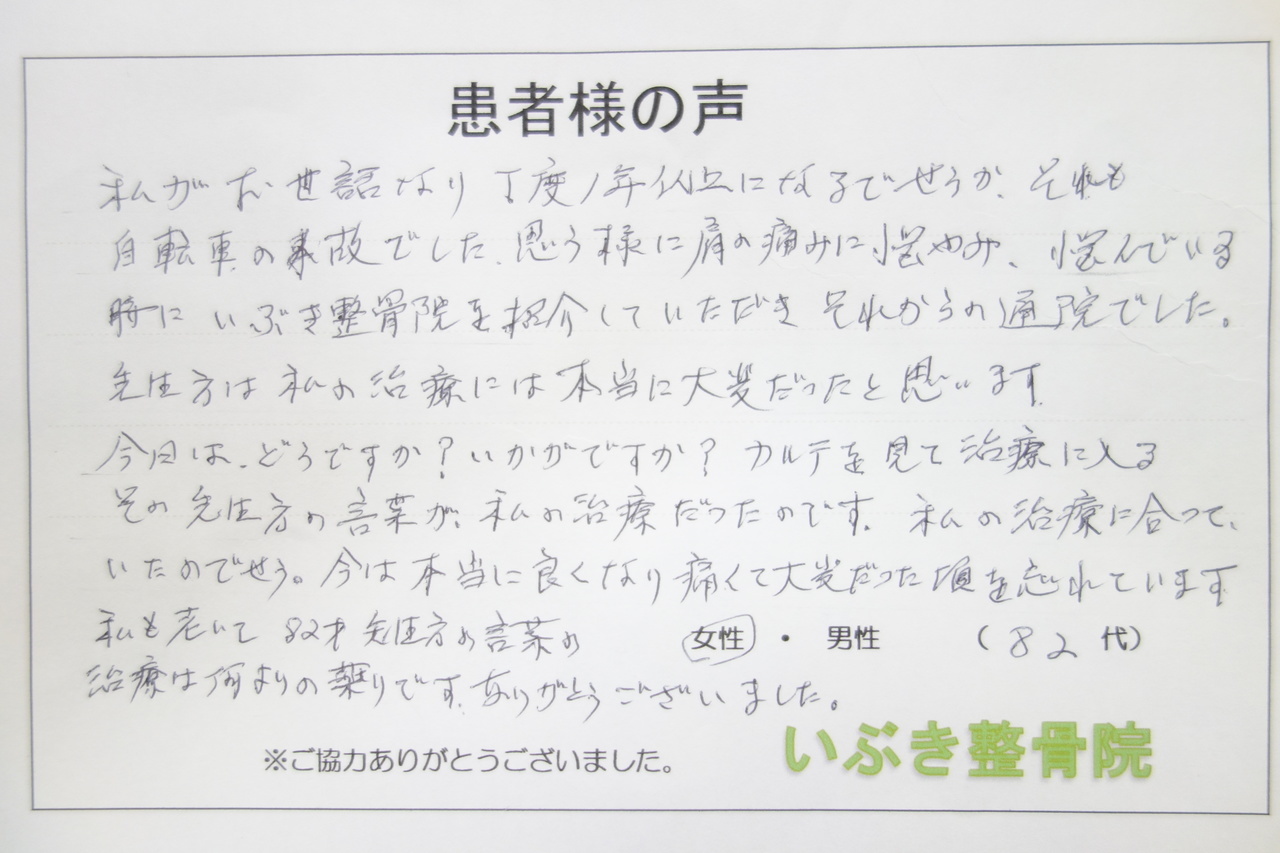 患者様の声
私がお世話なり丁度1年以上になるでせうか、それも
自転車の事故でした、思う様に肩の痛みに悩やみ、悩んでいる
時にいぶき整骨院を紹介していただきそれからの通院でした。
先生方は私の治療には本当に大変だったと思います
今日は、どうですか?いかがですか?カルテを見て治療に入る
その先生方の言葉が、私の治療だったのです、私の治療に合って、
いたのでせう。今は本当に良くなり痛くて大変だった頃を忘れています
私も老いて82才先生方の言葉の
女性・男性 (82代)
治療は何よりの薬りです、ありがとうございました。
※ご協力ありがとうございました。
いぶき整骨院